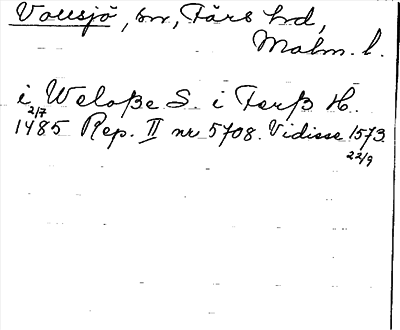 Vollsjö, sn, Färs hd,
Malm. l.
i Weloße S. i Ferß H.
1485 2/7 Rep. II nr 5708. Vidisse 1573
22/9